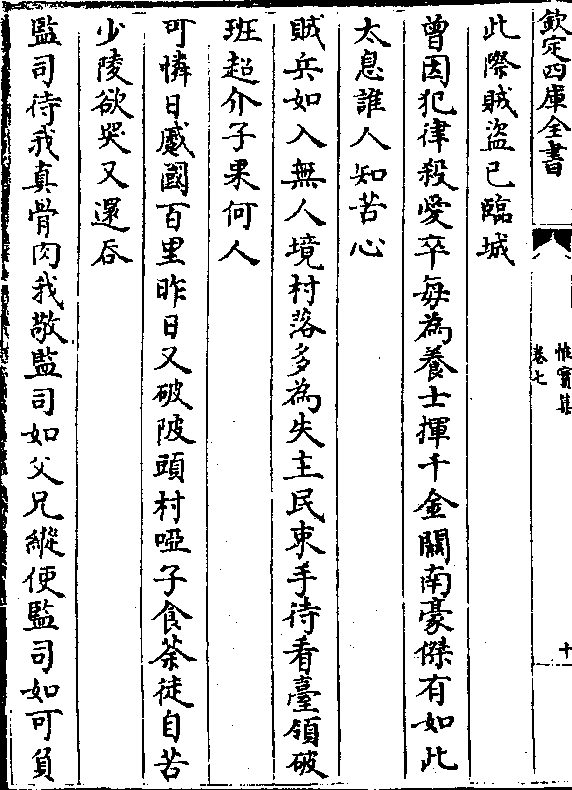 欽定四庫全書
惟實集
卷七
十
此際賊盜已臨城
曾因犯律殺愛卒每為養士揮千金關南豪傑有如此
太息誰人知苦心
賊兵如入無人境村落多為失主民束手待看臺領破
班超介子果何人
可憐日蹙國百里昨日又破陂頭村啞子食荼徒自苦
少陵欲哭又還吞
監司待我真骨肉我敬監司如父兄縱使監司如可負